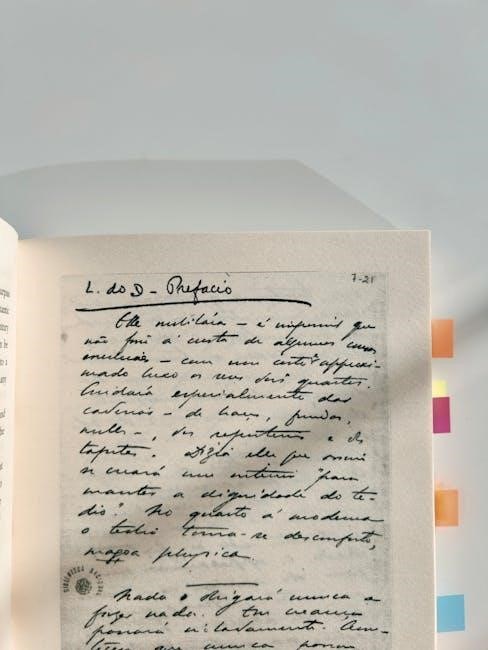 L. do D - Prefacio
7-21
Elle mobilára – é impossivel que
não fosse á custa de algumas cousas
essenciaes – com um certo e approxi-
mado luxo os seus dois quartos.
Cuidára especialmente das
cadeiras – de braços, fundas,
molles –, dos reposteiros e dos
tapetes. Dizia elle que assim
se creára um interior "para
manter a dignidade do te-
dio". No quarto á moderna
o tedio torna-se desconforto,
magoa physica.
BIBLIOTECA NACIONAL
Nada o obrigára nunca a
fazer nada. Em creança
passára isoladamente. Acon-
teceu que nunca passou